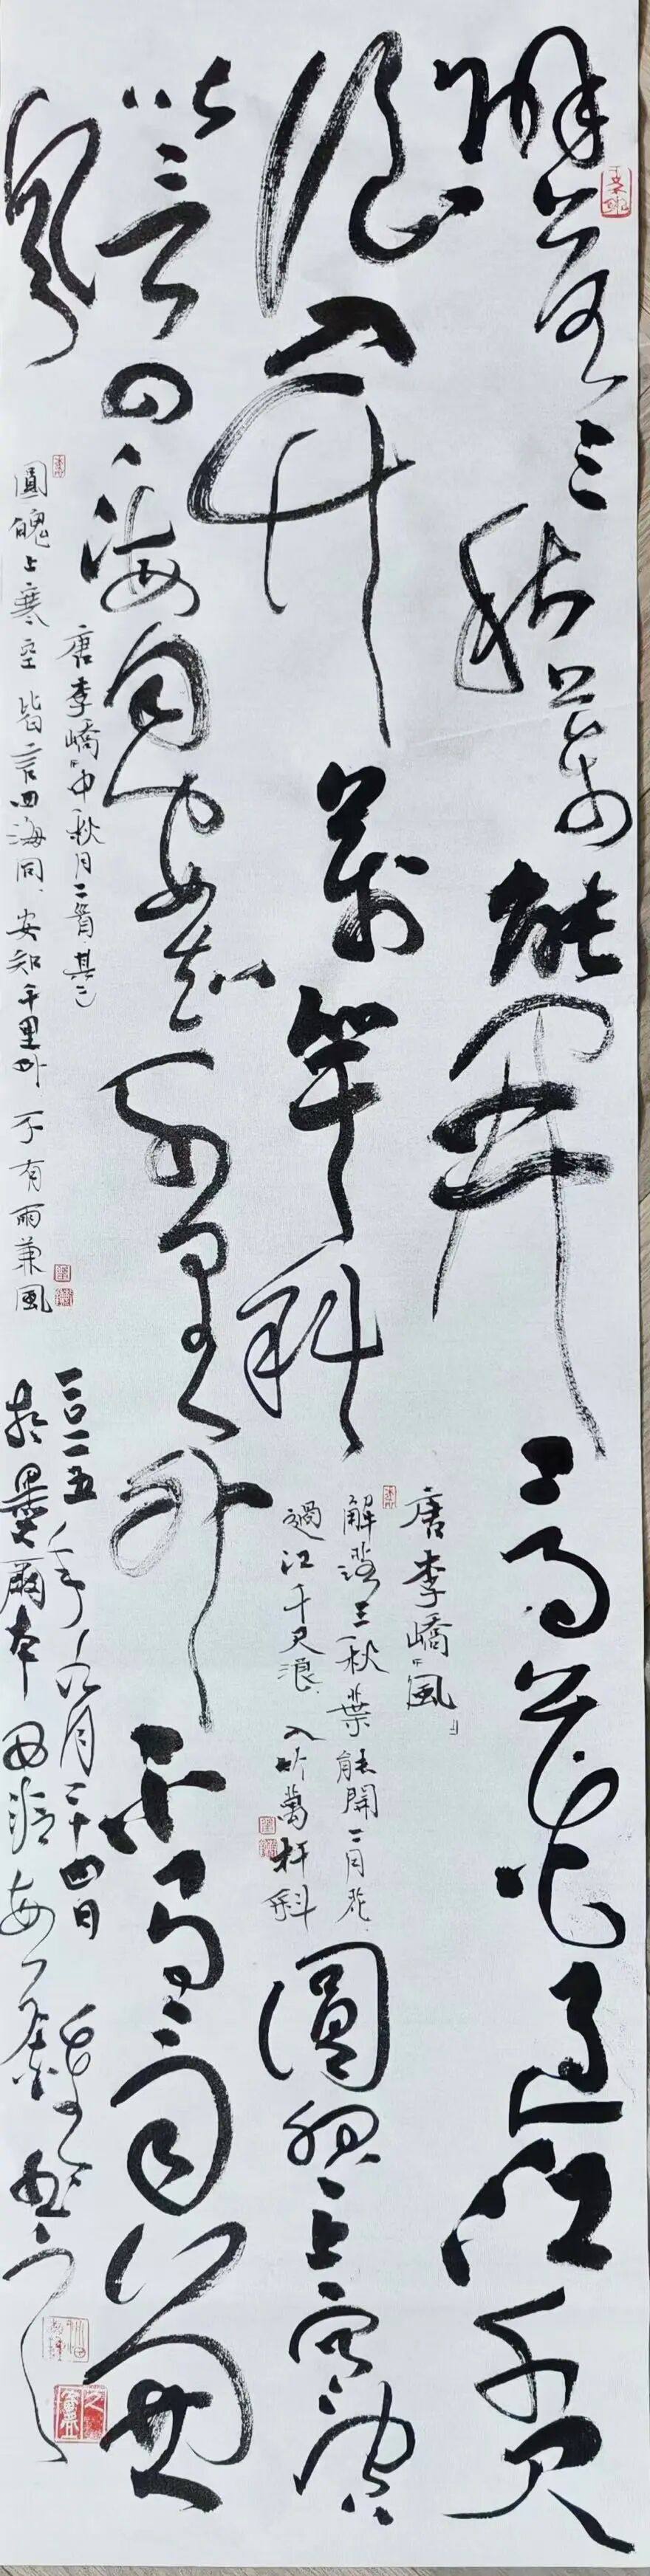 解落三秋葉能開二月花過江千尺
浪入竹萬竿斜
唐李嶠「風」
解落三秋葉能開二月花
過江千尺浪入竹萬杆斜
圓魄上寒空
皆言四海同安知千里外不有雨兼
風
唐李嶠中秋月二首其二
圓魄上寒空皆言四海同安知千里外不有雨兼風
年九月二十四日
於墨爾本